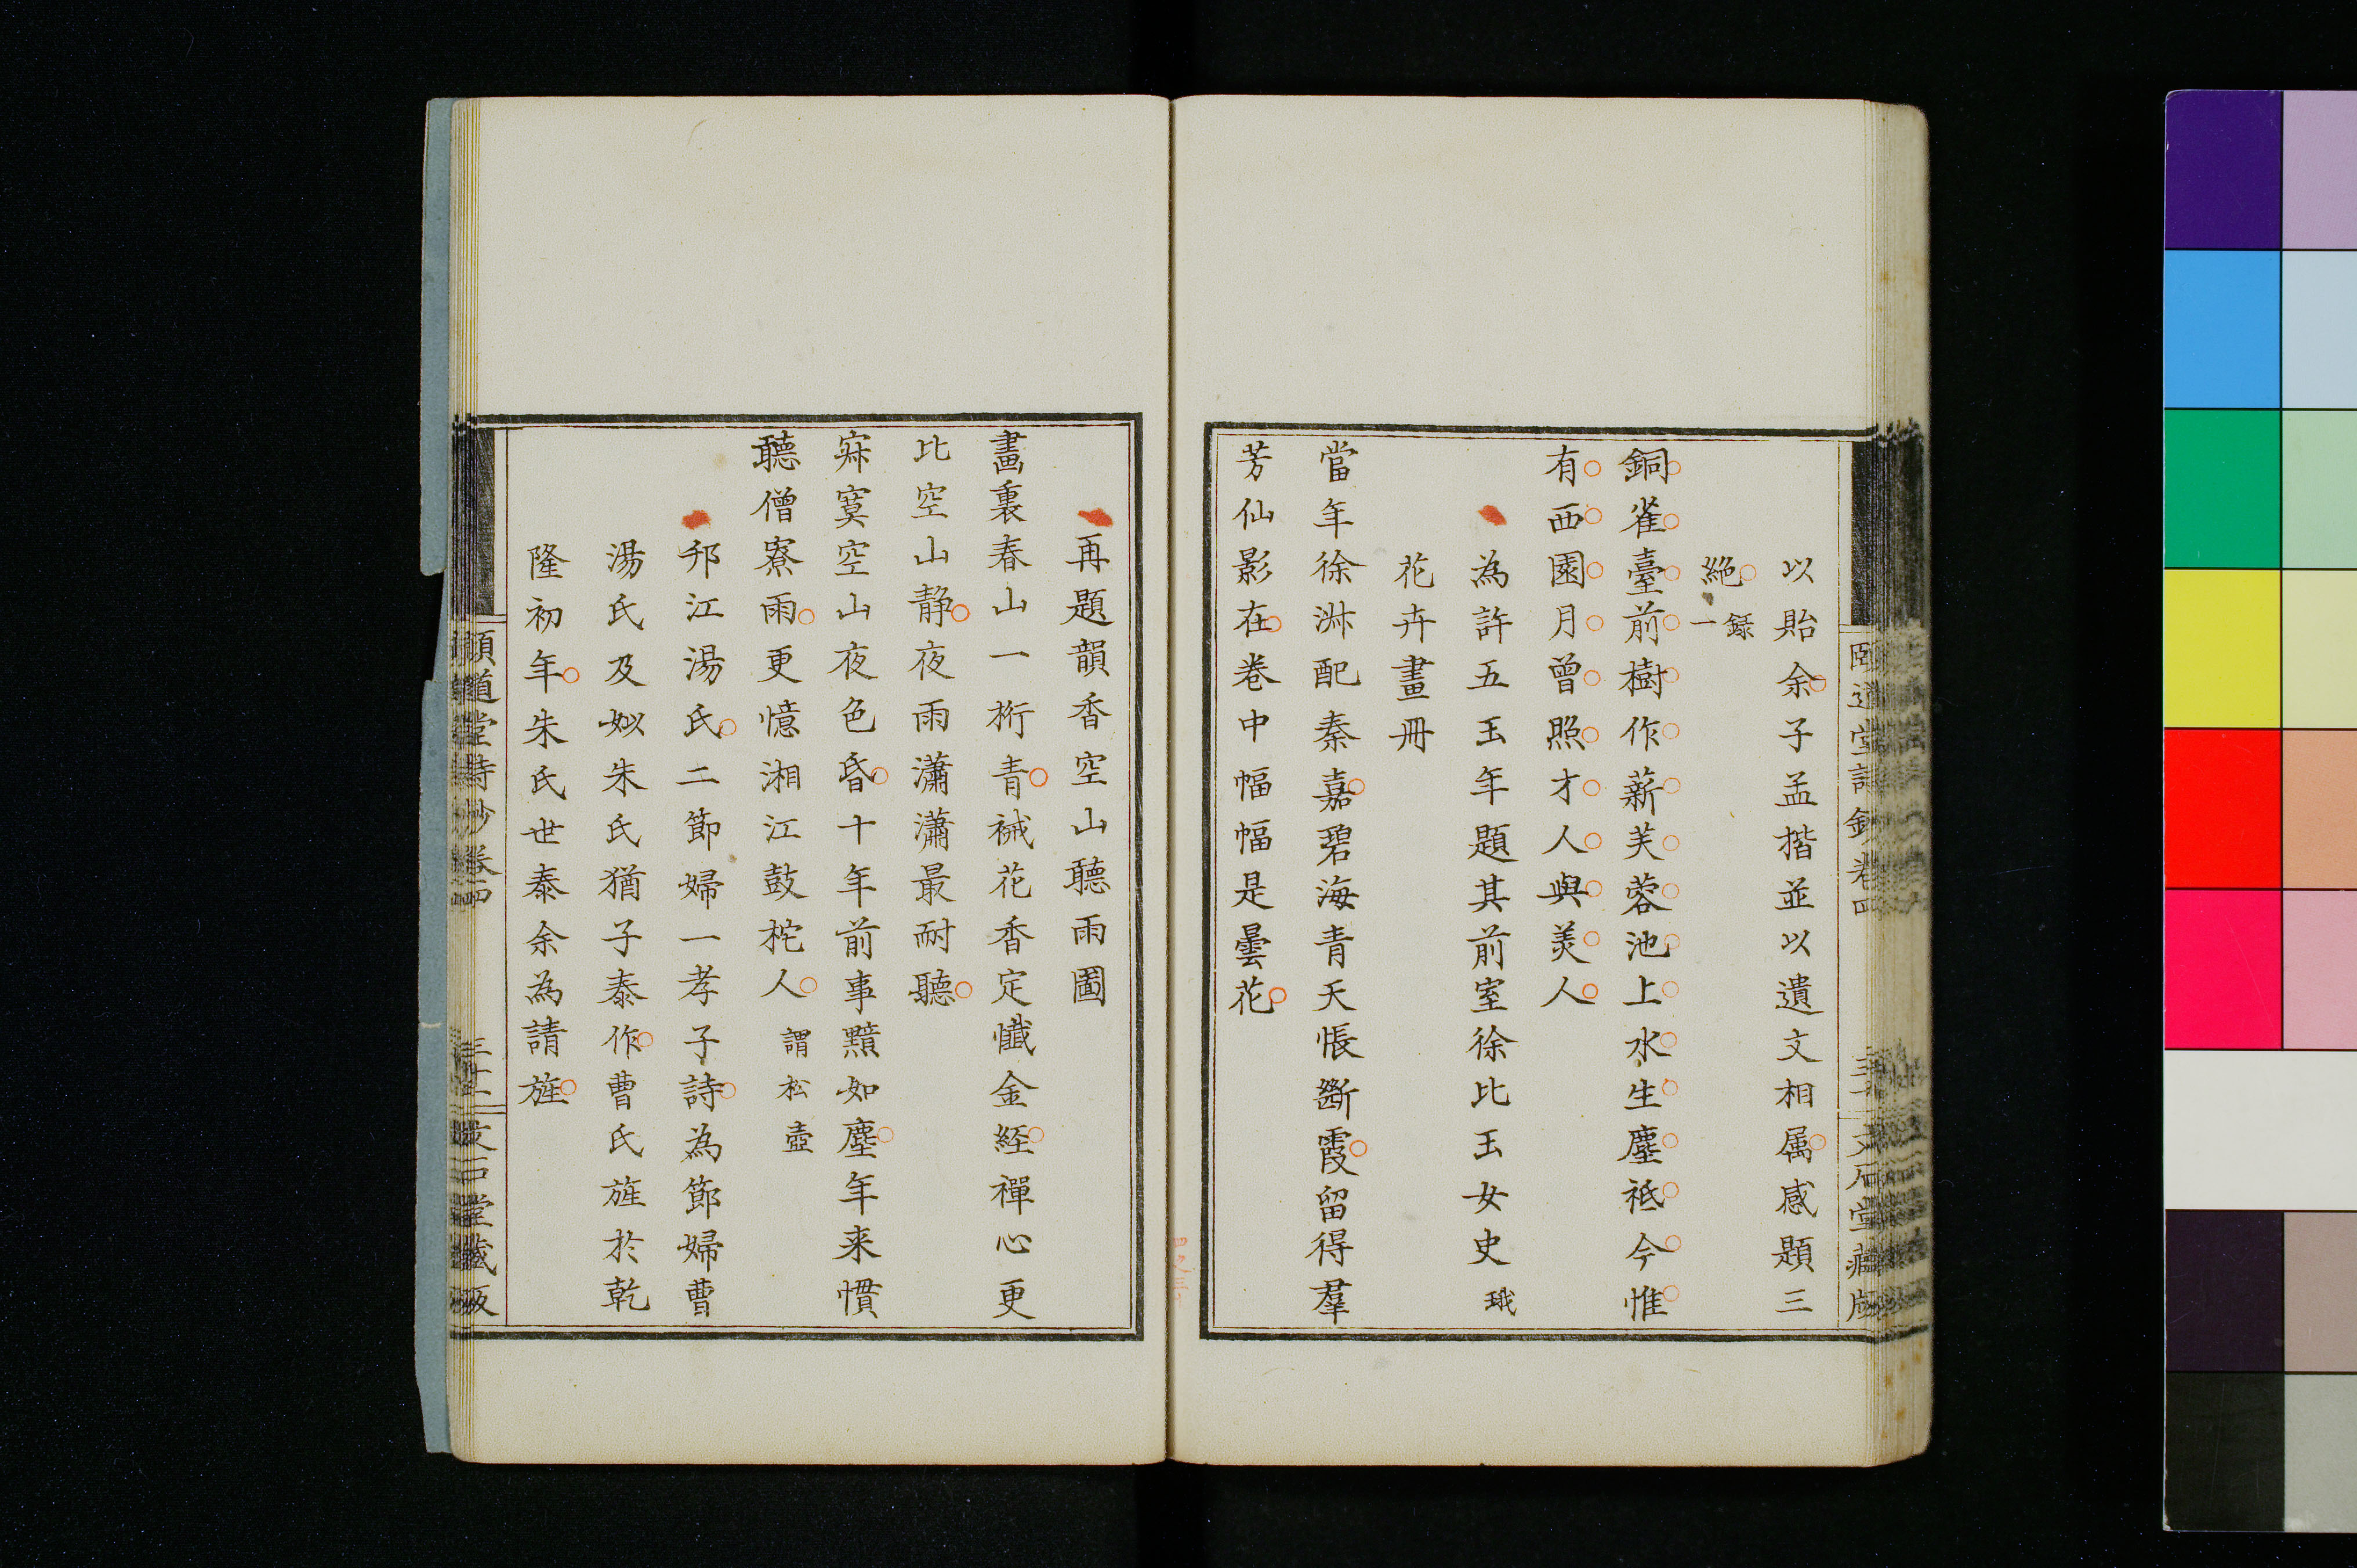 以貽余子孟揩並以遺文相属感題三
絶録一
銅雀臺前樹作薪芙蓉池上水生塵祗今惟
有西園月曾照才人與美人
為許五玉年題其前室徐比玉女史珴
花卉畫冊
當年徐淋配秦嘉碧海青天悵斷霞留得羣
芳仙影在卷中幅幅是曇花
再題韻香空山聽雨圖
畫裏春山一桁青裓花香定懺金経禪心更
比空山静夜雨瀟瀟最耐聽
寂寞空山夜色昏十年前事黯如塵年来慣
聽僧寮雨更憶湘江鼓柁人謂松壺
邗江湯氏二節婦一孝子詩為節婦曹
湯氏及姒朱氏猶子泰作曹氏旌於乾
隆初年朱氏世泰余為請旌
頤道堂詩鈔卷四
文石堂藏版